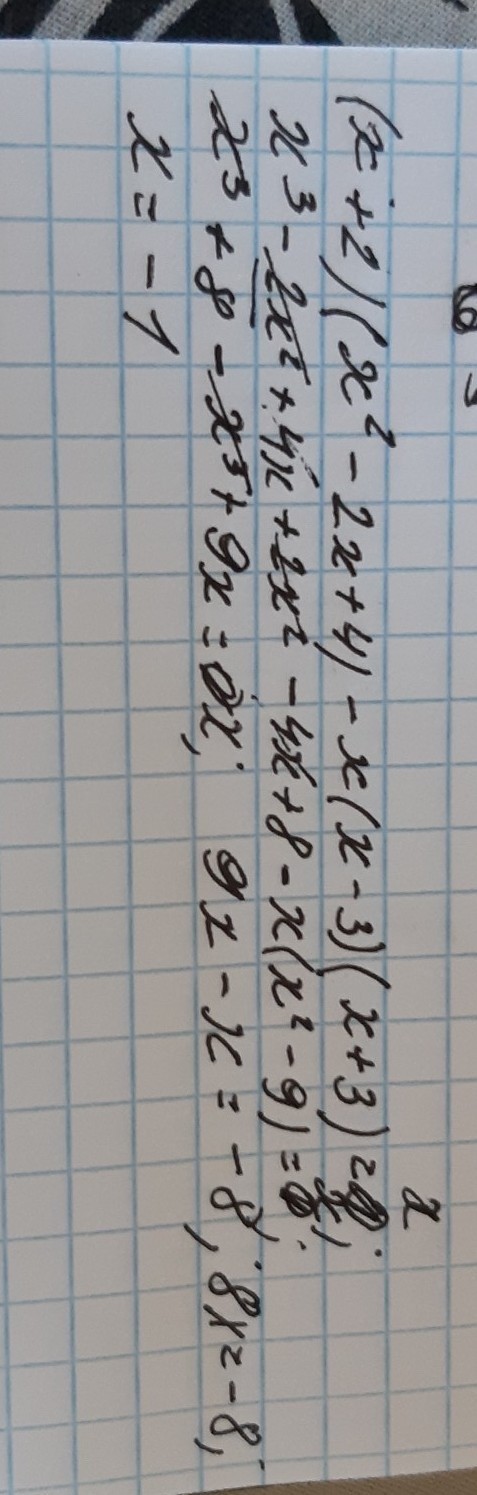 x
(x+2)(x²-2x+4)-x(x-3)(x+3)=x;
x³-2x²+4x+2x²-4x+8-x(x²-9)=x;
x³+8-x³+9x=x; 9x-x=-8; 8x=-8;
x=-1